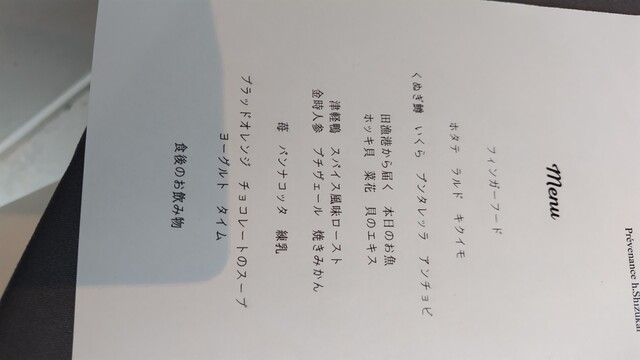 Prévenance h.Shizukai
Menu
フィンガーフード
ホタテ ラルド キクイモ
くぬぎ鱒 いくら プンタレッラ アンチョビ
田漁港から届く 本日のお魚
ホッキ貝 菜花 貝のエキス
津軽鴨 スパイス風味ロースト
金時人参 プチヴェール 焼きみかん
苺 パンナコッタ 練乳
ブラッドオレンジ チョコレートのスープ
ヨーグルト タイム
食後のお飲み物